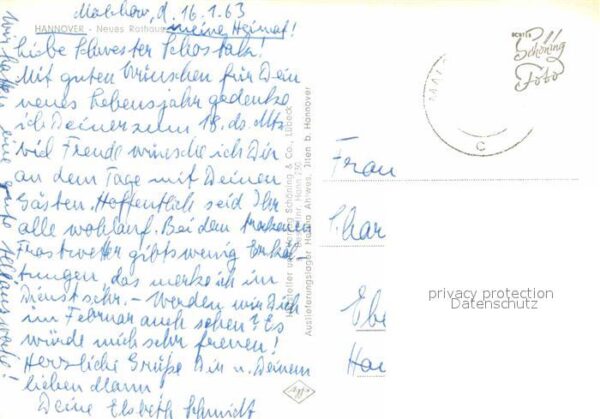 d. 16.1.63
HANNOVER - Neues Rathaus
meine Heimat!
Liebe Schwester
Mit guten Wünschen für Dein
neues Lebensjahr gedenke
ich Deiner zum 18. ds. Mts.
viel Freude wünsche ich Dir
an dem Tage mit Deinen
Gästen. Hoffentlich seid Ihr
alle wohlauf. Bei dem trockenen
Frostwetter gibts wenig Erkäl-
tungen, das merke ich im
Dienst sehr. – Werden wir Dich
im Februar auch sehen? Es
würde mich sehr freuen!
Herzliche Grüße Dir u. Deinem
lieben Mann
Deine Elsbeth Schmidt
Wir hatten eine gute
Schöning & Co., Lübeck
Auslieferungslager Ahlten b. Hannover
ECHTES
Schöning
Foto
Frau
Char
Ebe
Han
privacy protection
Datenschutz